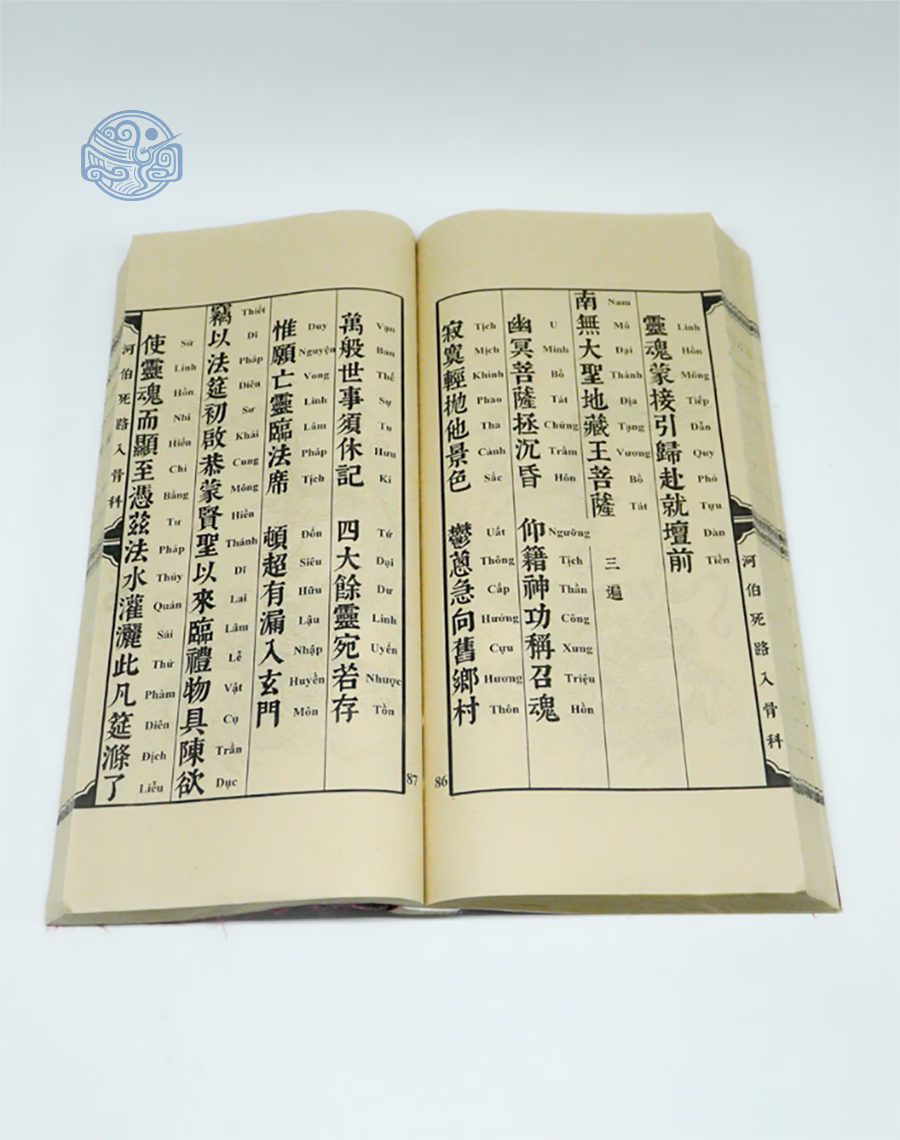 河伯死路入骨科
靈魂蒙接引歸赴就壇前
Linh Hồn Mông Tiếp Dẫn Quy Phó Tựu Đàn Tiền
南無大聖地藏王菩薩 三遍
Nam Mô Đại Thánh Địa Tạng Vương Bồ Tát
幽冥菩薩拯沉昏 仰籍神功稱召魂
U Minh Bồ Tát Chửng Trầm Hôn Ngưỡng Tịch Thần Công Xưng Triệu Hồn
寂寞輕拋他景色 鬱蔥急向舊鄉村
Tịch Mịch Khinh Phao Tha Cảnh Sắc Uất Thông Cấp Hướng Cựu Hương Thôn
86
萬般世事須休記 四大餘靈宛若存
Vạn Ban Thế Sự Tu Hưu Kí Tứ Đại Dư Linh Uyển Nhược Tồn
惟願亡靈臨法席 頓超有漏入玄門
Duy Nguyện Vong Linh Lâm Pháp Tịch Đốn Siêu Hữu Lậu Nhập Huyền Môn
竊以法筵初啟恭蒙賢聖以來臨禮物具陳欲
Thiết Dĩ Pháp Diên Sơ Khải Cung Mông Hiền Thánh Dĩ Lai Lâm Lễ Vật Cụ Trần Dục
使靈魂而顯至憑茲法水灌灑此凡筵滌了
Sử Linh Hồn Nhi Hiển Chí Bằng Tư Pháp Thủy Quán Sái Thử Phàm Diên Địch Liễu
河伯死路入骨科
87